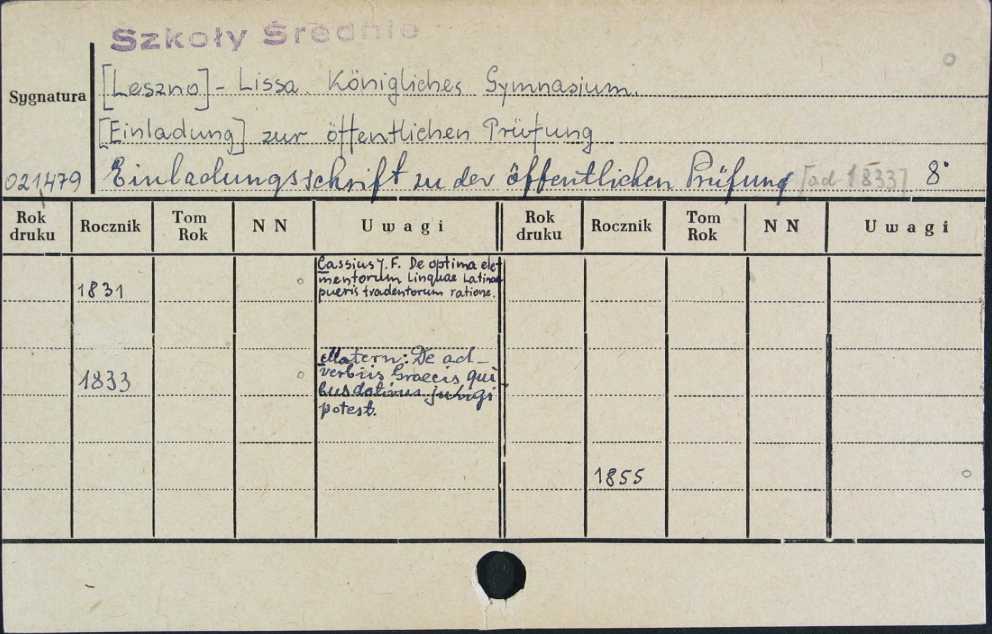 Szkoły Średnie
Sygnatura
[Leszno] - Lissa. Königliches Gymnasium.
[Einladung] zur öffentlichen Prüfung
021479 Einladungsschrift zu der öffentlichen Prüfung [ad 1833] 8°
Rok druku Rocznik Tom Rok N N Uwagi Rok druku Rocznik Tom Rok N N Uwagi
Cassius J. F. De optima ele-
1831 mentorum Linquae Latinae
pueris tradentorum ratione.
Matern: De ad-
1833 verbiis Graecis qui
bus dativus jungi
potest.
1855